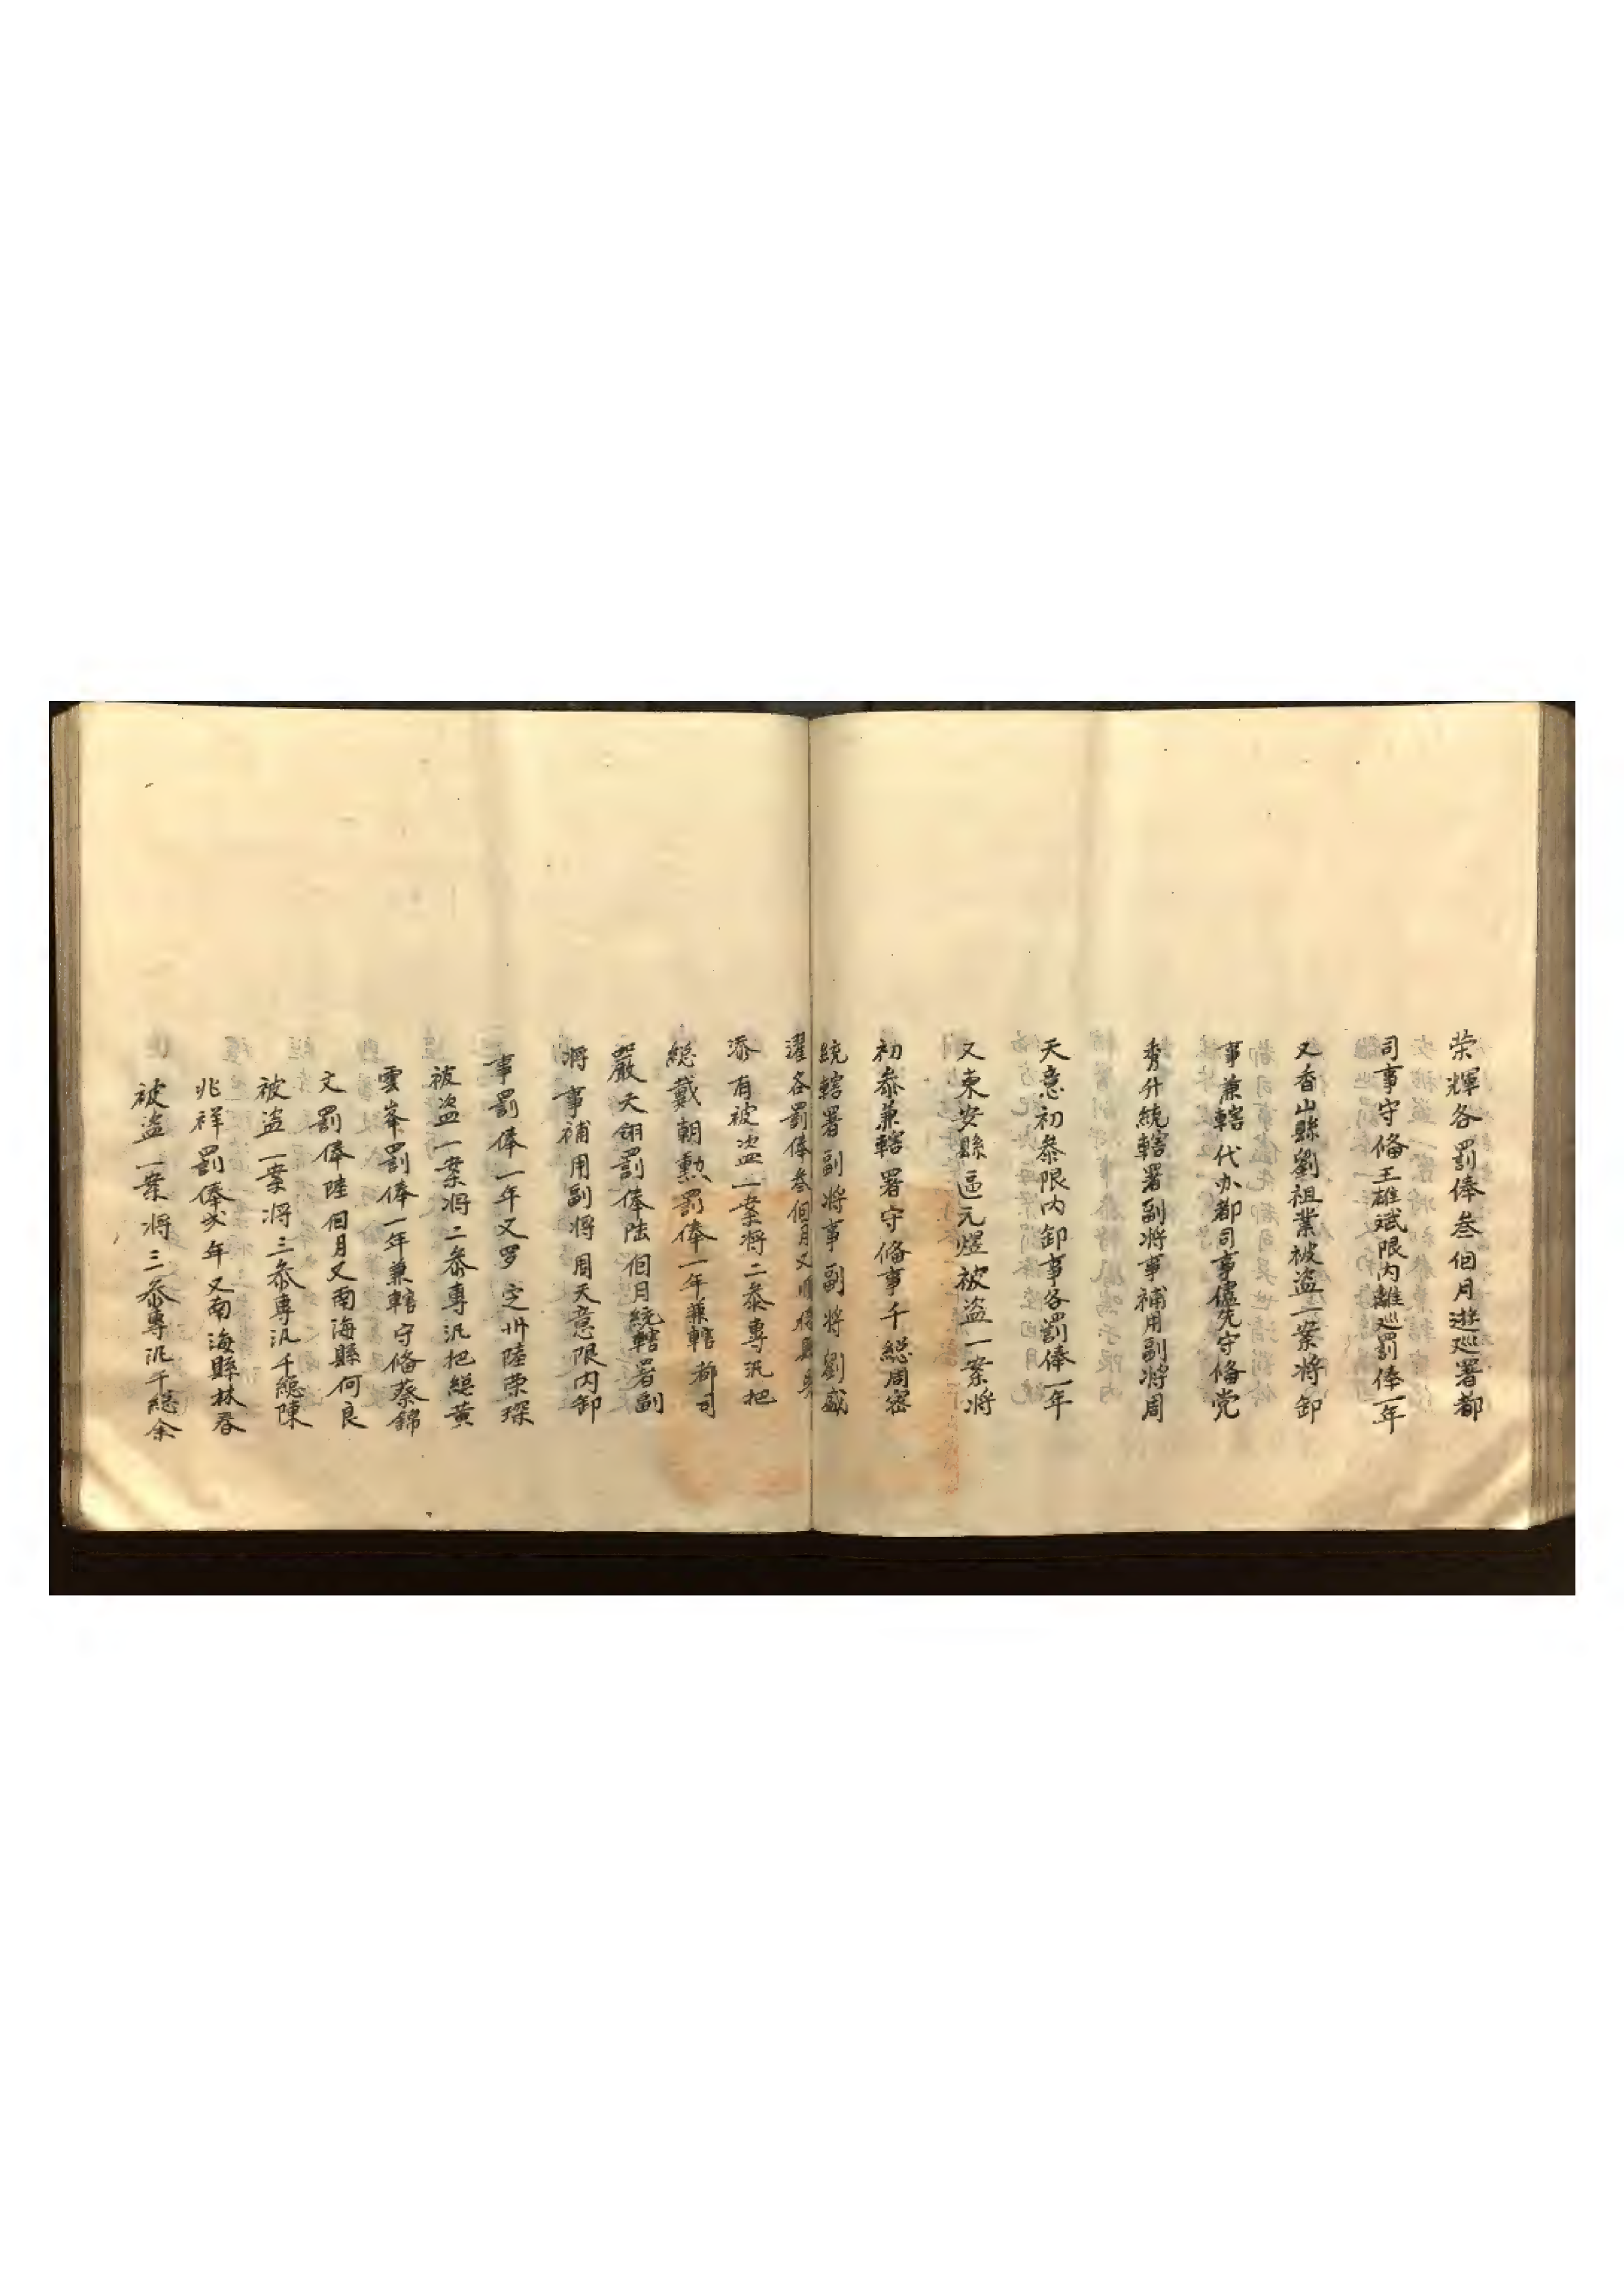 荣輝各罰俸叁個月遊巡署都
司事守俻王雄斌限内離巡罰俸一年
又香山縣劉祖業被盗一案将卸
事兼轄代办都司事儘先守俻党
秀升統轄署副将事補用副将周
天意初叅限内卸事各罰俸一年
又東安縣區元煜被盗一案将
初叅兼轄署守俻事千総周宻
統轄署副将事副将劉盛
濯各罰俸叁個月又順德縣
添有被盗一案将二叅專汛把
総戴朝勲罰俸一年兼轄都司
嚴天翎罰俸陆個月統轄署副
将事補用副将周天意限内卸
事罰俸一年又罗定州陸荣琛
被盗一案将二叅專汛把緫黄
雲峯罰俸一年兼轄守俻蔡錦
文罰俸陸個月又南海縣何良
被盗一案将三叅專汛千緫陳
兆祥罰俸弍年又南海縣林春
被盗一案将三叅專汛千緫余